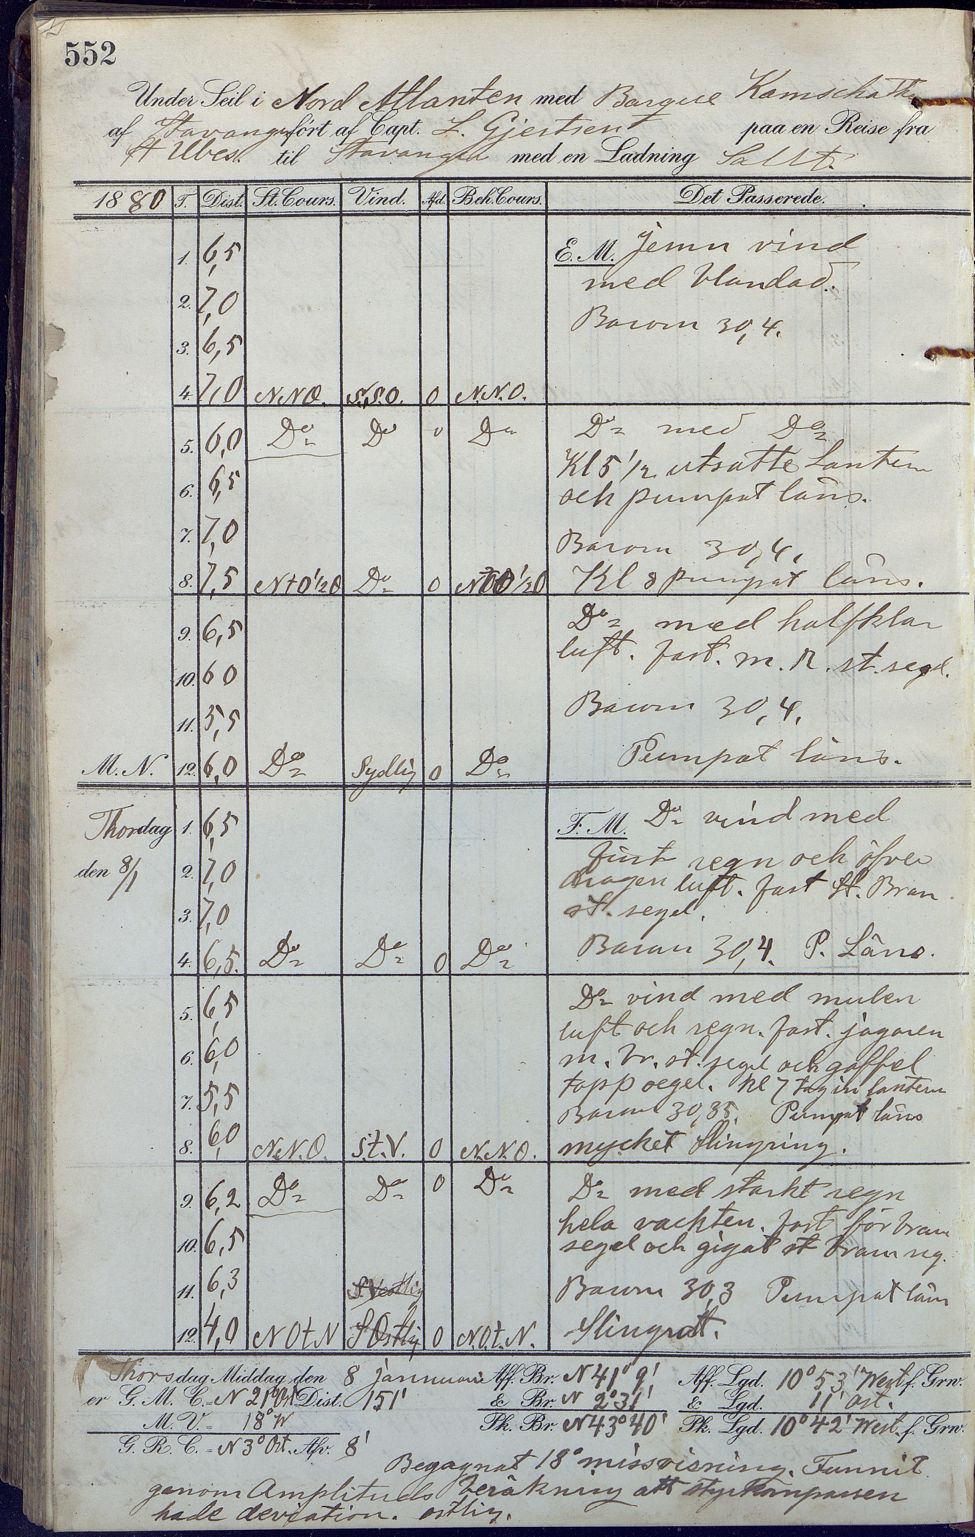 552
Under Seil i Nord Atlanten med Barque Kamschatka
af Stavanger fört af Capt. L. Gjertsen paa en Reise fra
St Ubes til Stavanger med en Ladning Salt.
1880 T. Dist. St. Cours. Vind. Afd. Beh. Cours. Det Passerede.
1. 6,5 E. M. Jemn vind
med
2. 7,0
Barom 30,4.
3. 6,5
4. 7,0 N.N.O. S.S.O. 0 N.N.O.
5. 6,0 Do Do 0 Do Do med Do
Kl 5 1/2 utsatte Lantern
6. 6,5 och pumpat läns.
7. 7,0 Barom 30,4.
8. 7,5 NtO1/2O Do 0 NtO1/2O Kl 8 pumpat läns.
9. 6,5 Do med halfklar
luft. fast. m. R. st. segel.
10. 6 0
11. 5,5 Barom 30,4.
M. N. 12. 6,0 Do Sydlig 0 Do Pumpat läns.
Thorsdag 1. 6,5 F. M. Do vind med
den 8/1 2. 7,0 fint regn och öfver
dragen luft. fast St. Bram
3. 7,0 st. segel.
4. 6,5. Do Do 0 Do Barom 30,4. P. Läns.
5. 6,5 Do vind med mulen
luft och regn. fast. jagaren
6. 6,0 m. br. st. segel och gaffel
toppsegel. Kl 7 tag in lantern
7. 5,5 Barom 30,35. Pumpat läns
8. 6,0 N.N.O. S.t.V. 0 N.N.O. mycket slingring.
9. 6,2 Do Do 0 Do Do med starkt regn
hela vackten. fast för bram
10. 6,5 segel och gigat st bram seg.
11. 6,3 S Vestlig Barom 30,3 Pumpat läns
12. 4,0 NOtN S Ostlig 0 N.O.t.N. Slingrat.
Thorsdag Middag den 8 Januari Aff. Br. N 41° 9' Aff. Lgd. 10° 53' West f. Grw.
er G. M. C. = N 21° Ost Dist. 151' & Br. N 2° 31' & Lgd. 11' Ost.
M. V. = 18° W Pk. Br. N 43° 40' Pk. Lgd. 10° 42' West. f. Grw.
G. R. C. = N 3° Ost. Afv. 8'
Begagnat 18° missvisning. Funnit
genom Amplituds beräkning att styrkompassen
hade deviation. ostlig.